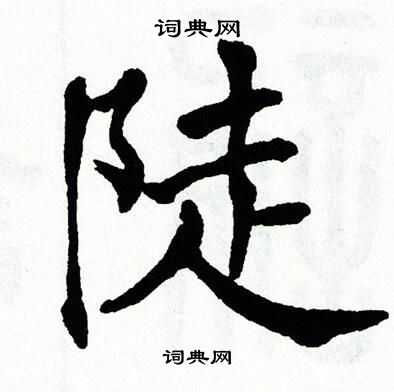 词典网
陡
词典网